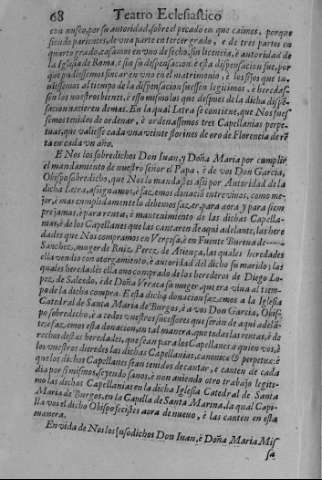 68 Teatro Eclesiastico
con nusco, por su autoridad, sobre el pecado en que caimos, porque
siendo parientes, de vna parte en tercer grado, e de tres partes en
quarto grado, casamos en vno de fecho, sin licencia, è autoridad de
la Iglesia de Roma, è sin su dispensacion: è esta dispensacion fue, por
que pudiessemos fincar en vno en el matrimonio, è los fijos que tu-
uiessemos al tiempo de la dispensacion fuessen legitimos, è heredas-
sen los nuestros bienes, è esso mismo los que despues de la dicha dispē-
sacion nacieren demas. En la qual Letra se contiene, que Nos fues
semos tenidos de ordenar, è ordenassemos tres Capellanias perpe-
tuas, que valiesse cada vna veinte florines de oro de Florencia de rē
ta en cada vn año.
E Nos los sobredichos Don Iuan, y Doña Maria por cumplir
el mandamiento de nuestro señor el Papa, è de vos Don Garcia,
Obispo sobredicho, que Nos lo mandastes assi por Autoridad de la
dicha Letra, assignamos, è fazemos donacion entre vivos, como me-
jor, è mas cumplidamente lo debemos fazer, para aora y para siem
pre jamas, è para renta, è mantenimiento de las dichas Capella-
nias, è de los Capellanes que las cantaren de aqui adelante, las here
dades que Nos compramos en Verçosa, è en Fuente Burena de
Sanchez, muger de Ruiz, Perez, de Atiença, las quales heredades
ella vendio con otorgamiento, è autoridad del dicho su marido; las
quales heredades ella ouo comprado de los herederos de Diego Lo-
pez, de Salcedo, è de Doña Vrraca su muger, que era viva al tiem-
po de la dicha compra. E esta dicha donacion fazemos a la Iglesia
Catedral de Santa Maria de Burgos, è a vos Don Garcia, Obis-
po sobredicho, è a todos vuestros sucessores que seràn de aqui adelā-
te; è fazemos esta donacion, en tal manera, que todas las rentas, è de
rechos destas heredades, que sean para los Capellanes a quien vos, è
los vuestros dieredes las dichas Capellanias, canonica, è perpetua: è
que los dichos Capellanes sean tenidos de cantar, è canten de cada
dia por si mismos, seyendo sanos, è non auiendo otro trabajo legiti-
mo las dichas Capellanias en la dicha Iglesia Catedral de Santa
Maria de Burgos, en la Capilla de Santa Marina, la qual Capi-
lla vos el dicho Obispo feziestes aora de nuevo, è las canten en esta
manera.
En vida de Nos los susodichos Don Iuan, è Doña Maria Mis-
sa